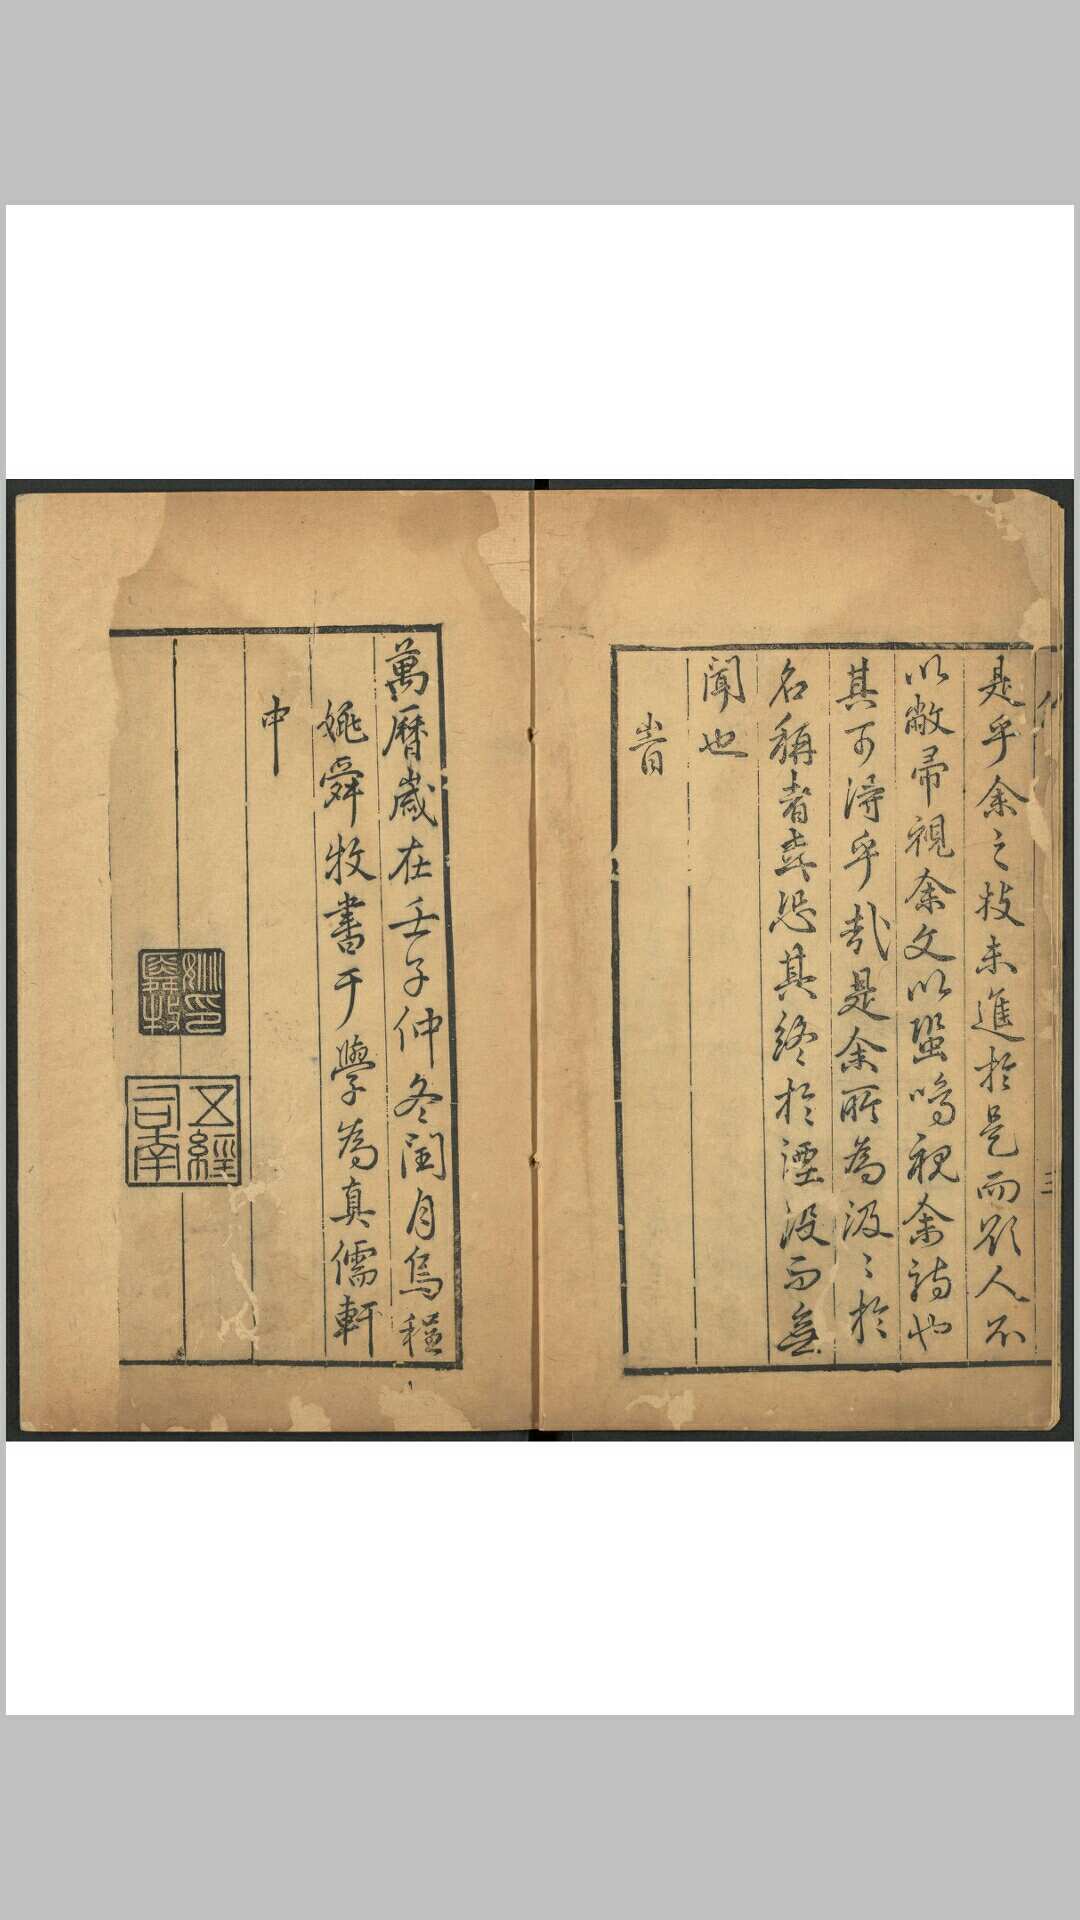 是乎余之技未進於是而欲人不
以敝帚視余文以蛩鳴視余詩也
其可得乎哉是余所為汲〻於
名稱者弆恐其終於湮沒而無
聞也
旹
萬曆歲在壬子仲冬閏月烏程
姚舜牧書于學為真儒軒
中
姚印舜牧
五經司南
三